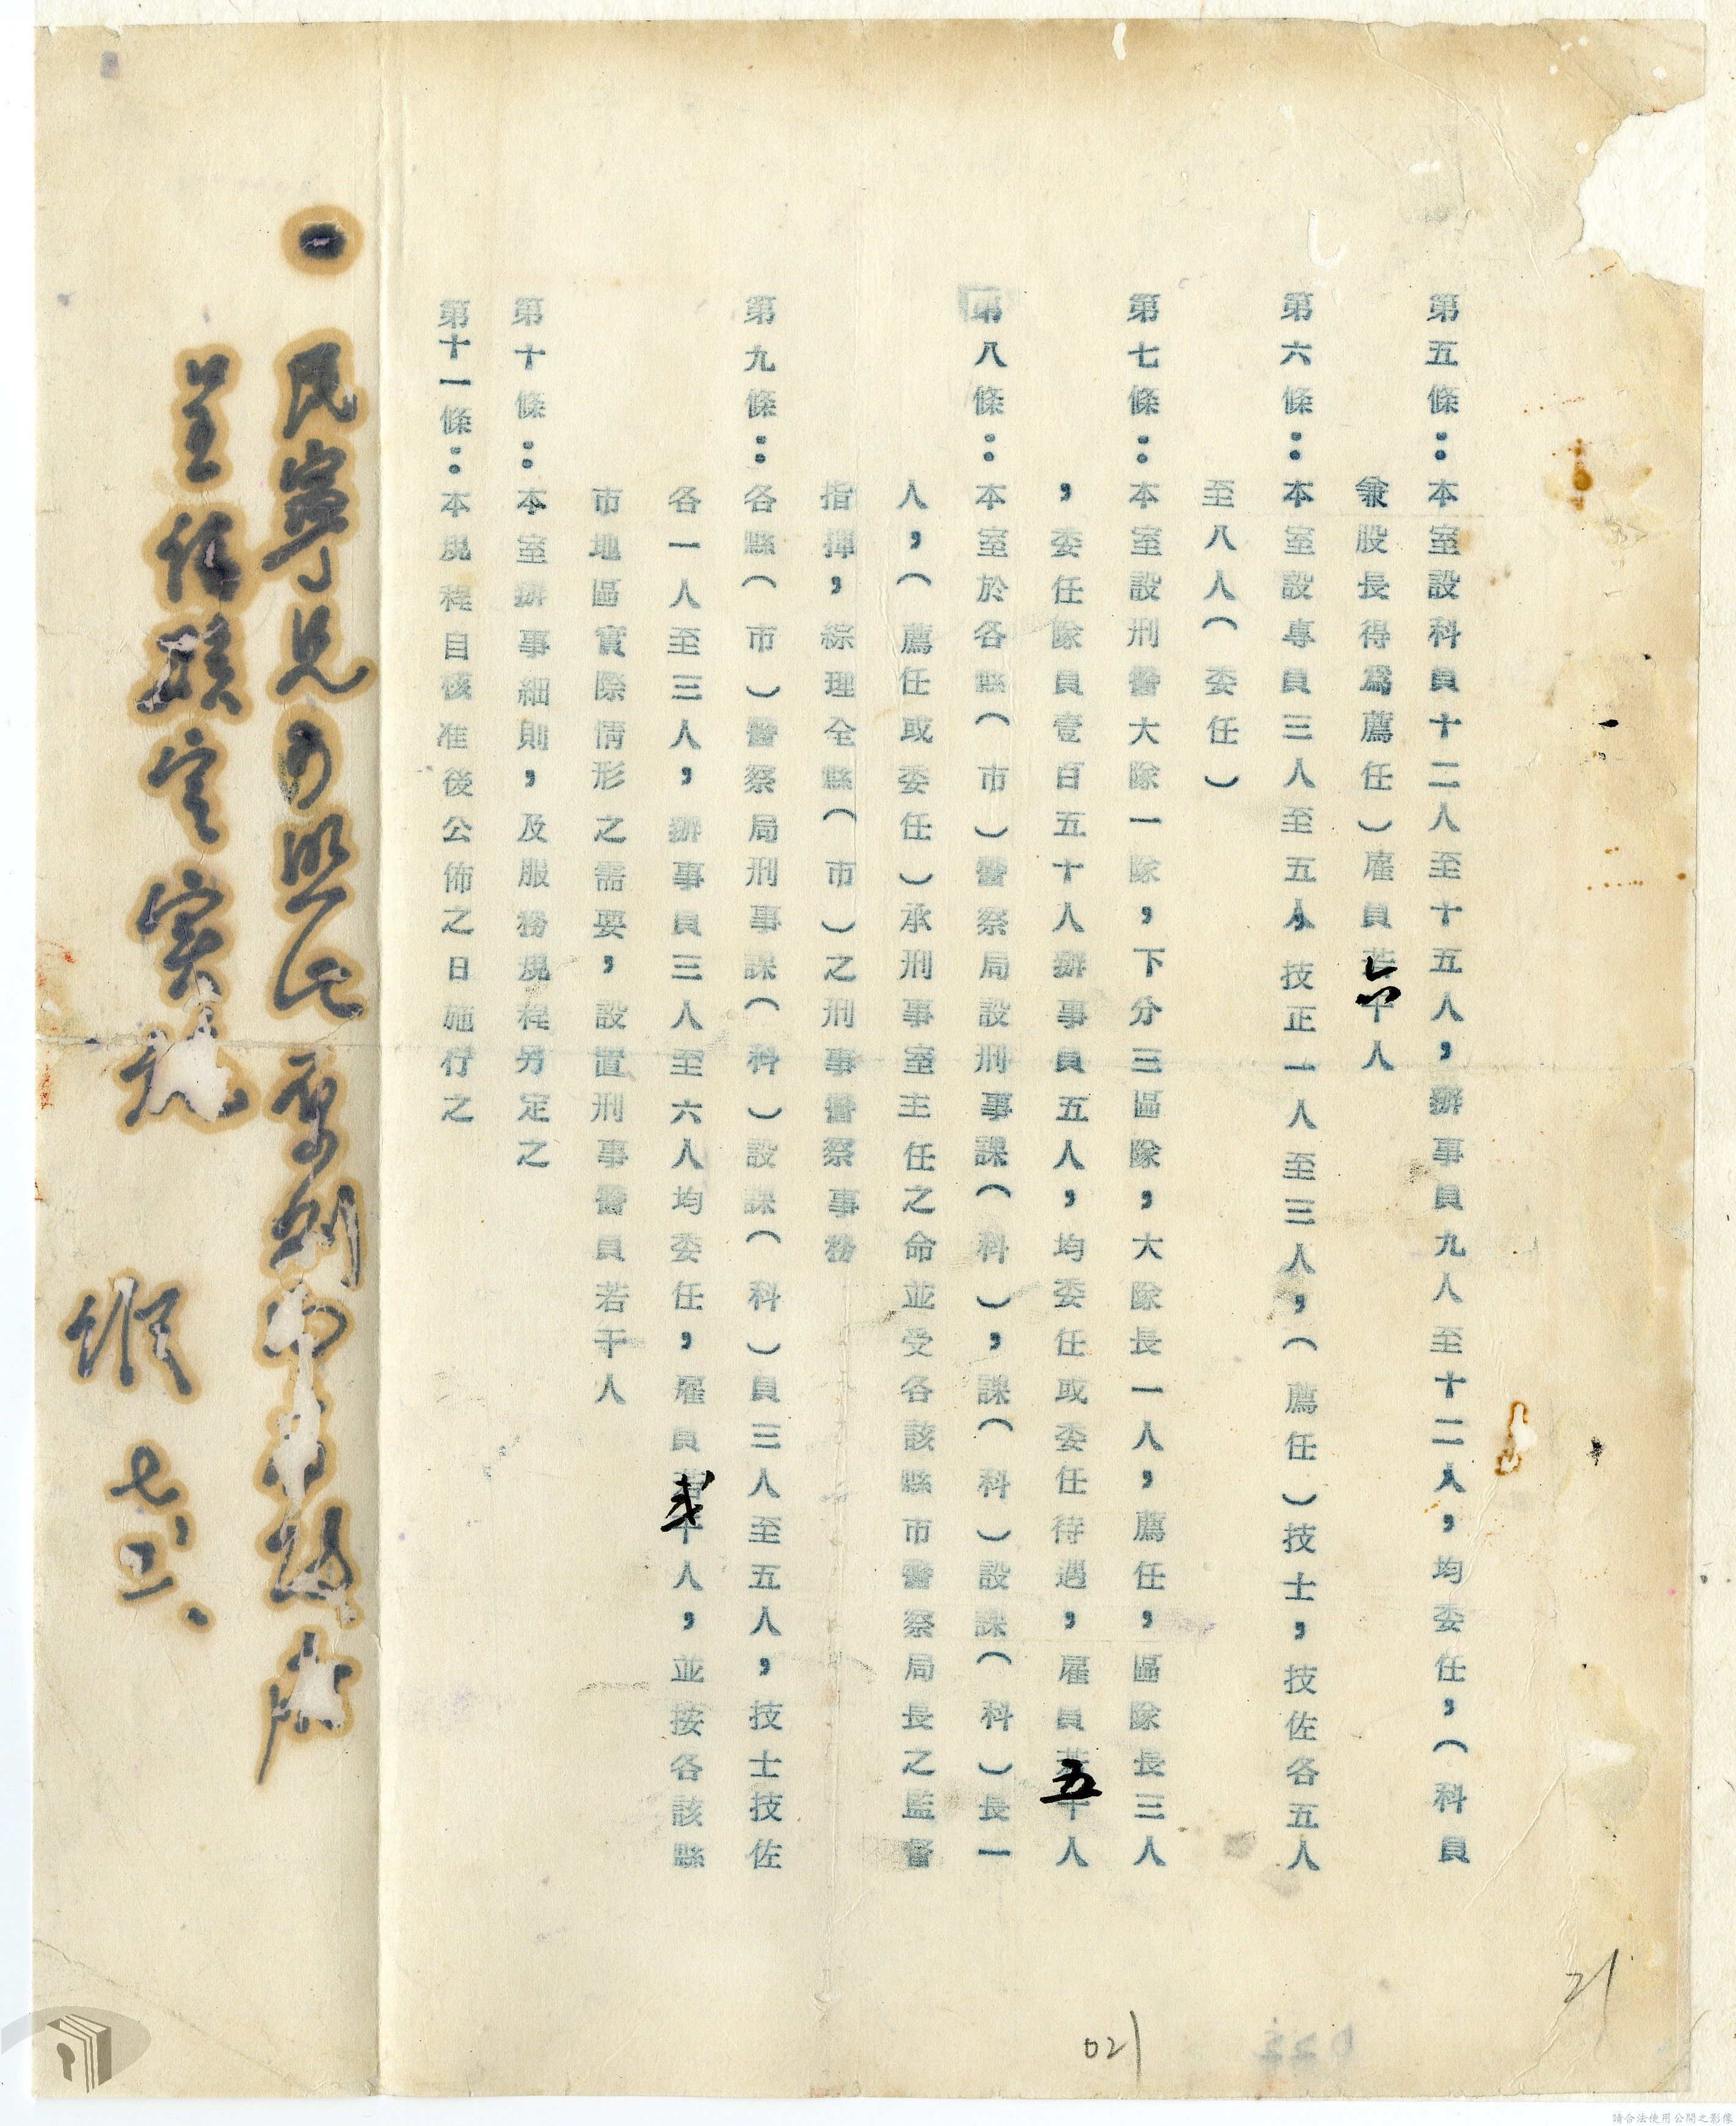 第五條：本室設科員十二人至十五人，辦事員九人至十二人，均委任，（科員
兼股長得爲薦任）雇員六人
第六條：本室設專員三人至五人，技正一人至三人，（薦任）技士，技佐各五人
至八人（委任）
第七條：本室設刑警大隊一隊，下分三區隊，大隊長一人，薦任，區隊長三人
，委任隊員壹百五十人辦事員五人，均委任或委任待遇，雇員五人
第八條：本室於各縣（市）警察局設刑事課（科），課（科）設課（科）長一
人，（薦任或委任）承刑事室主任之命並受各該縣市警察局長之監督
指揮，綜理全縣（市）之刑事警察事務
第九條：各縣（市）警察局刑事課（科）設課（科）員三人至五人，技士技佐
各一人至三人，辦事員三人至六人均委任，雇員弍人，並按各該縣
市地區實際情形之需要，設置刑事警員若干人
第十條：本室辦事細則，及服務規程另定之
第十一條：本規程自核准後公佈之日施行之
民寧兄可照此
21
021
請合法使用公開之影像